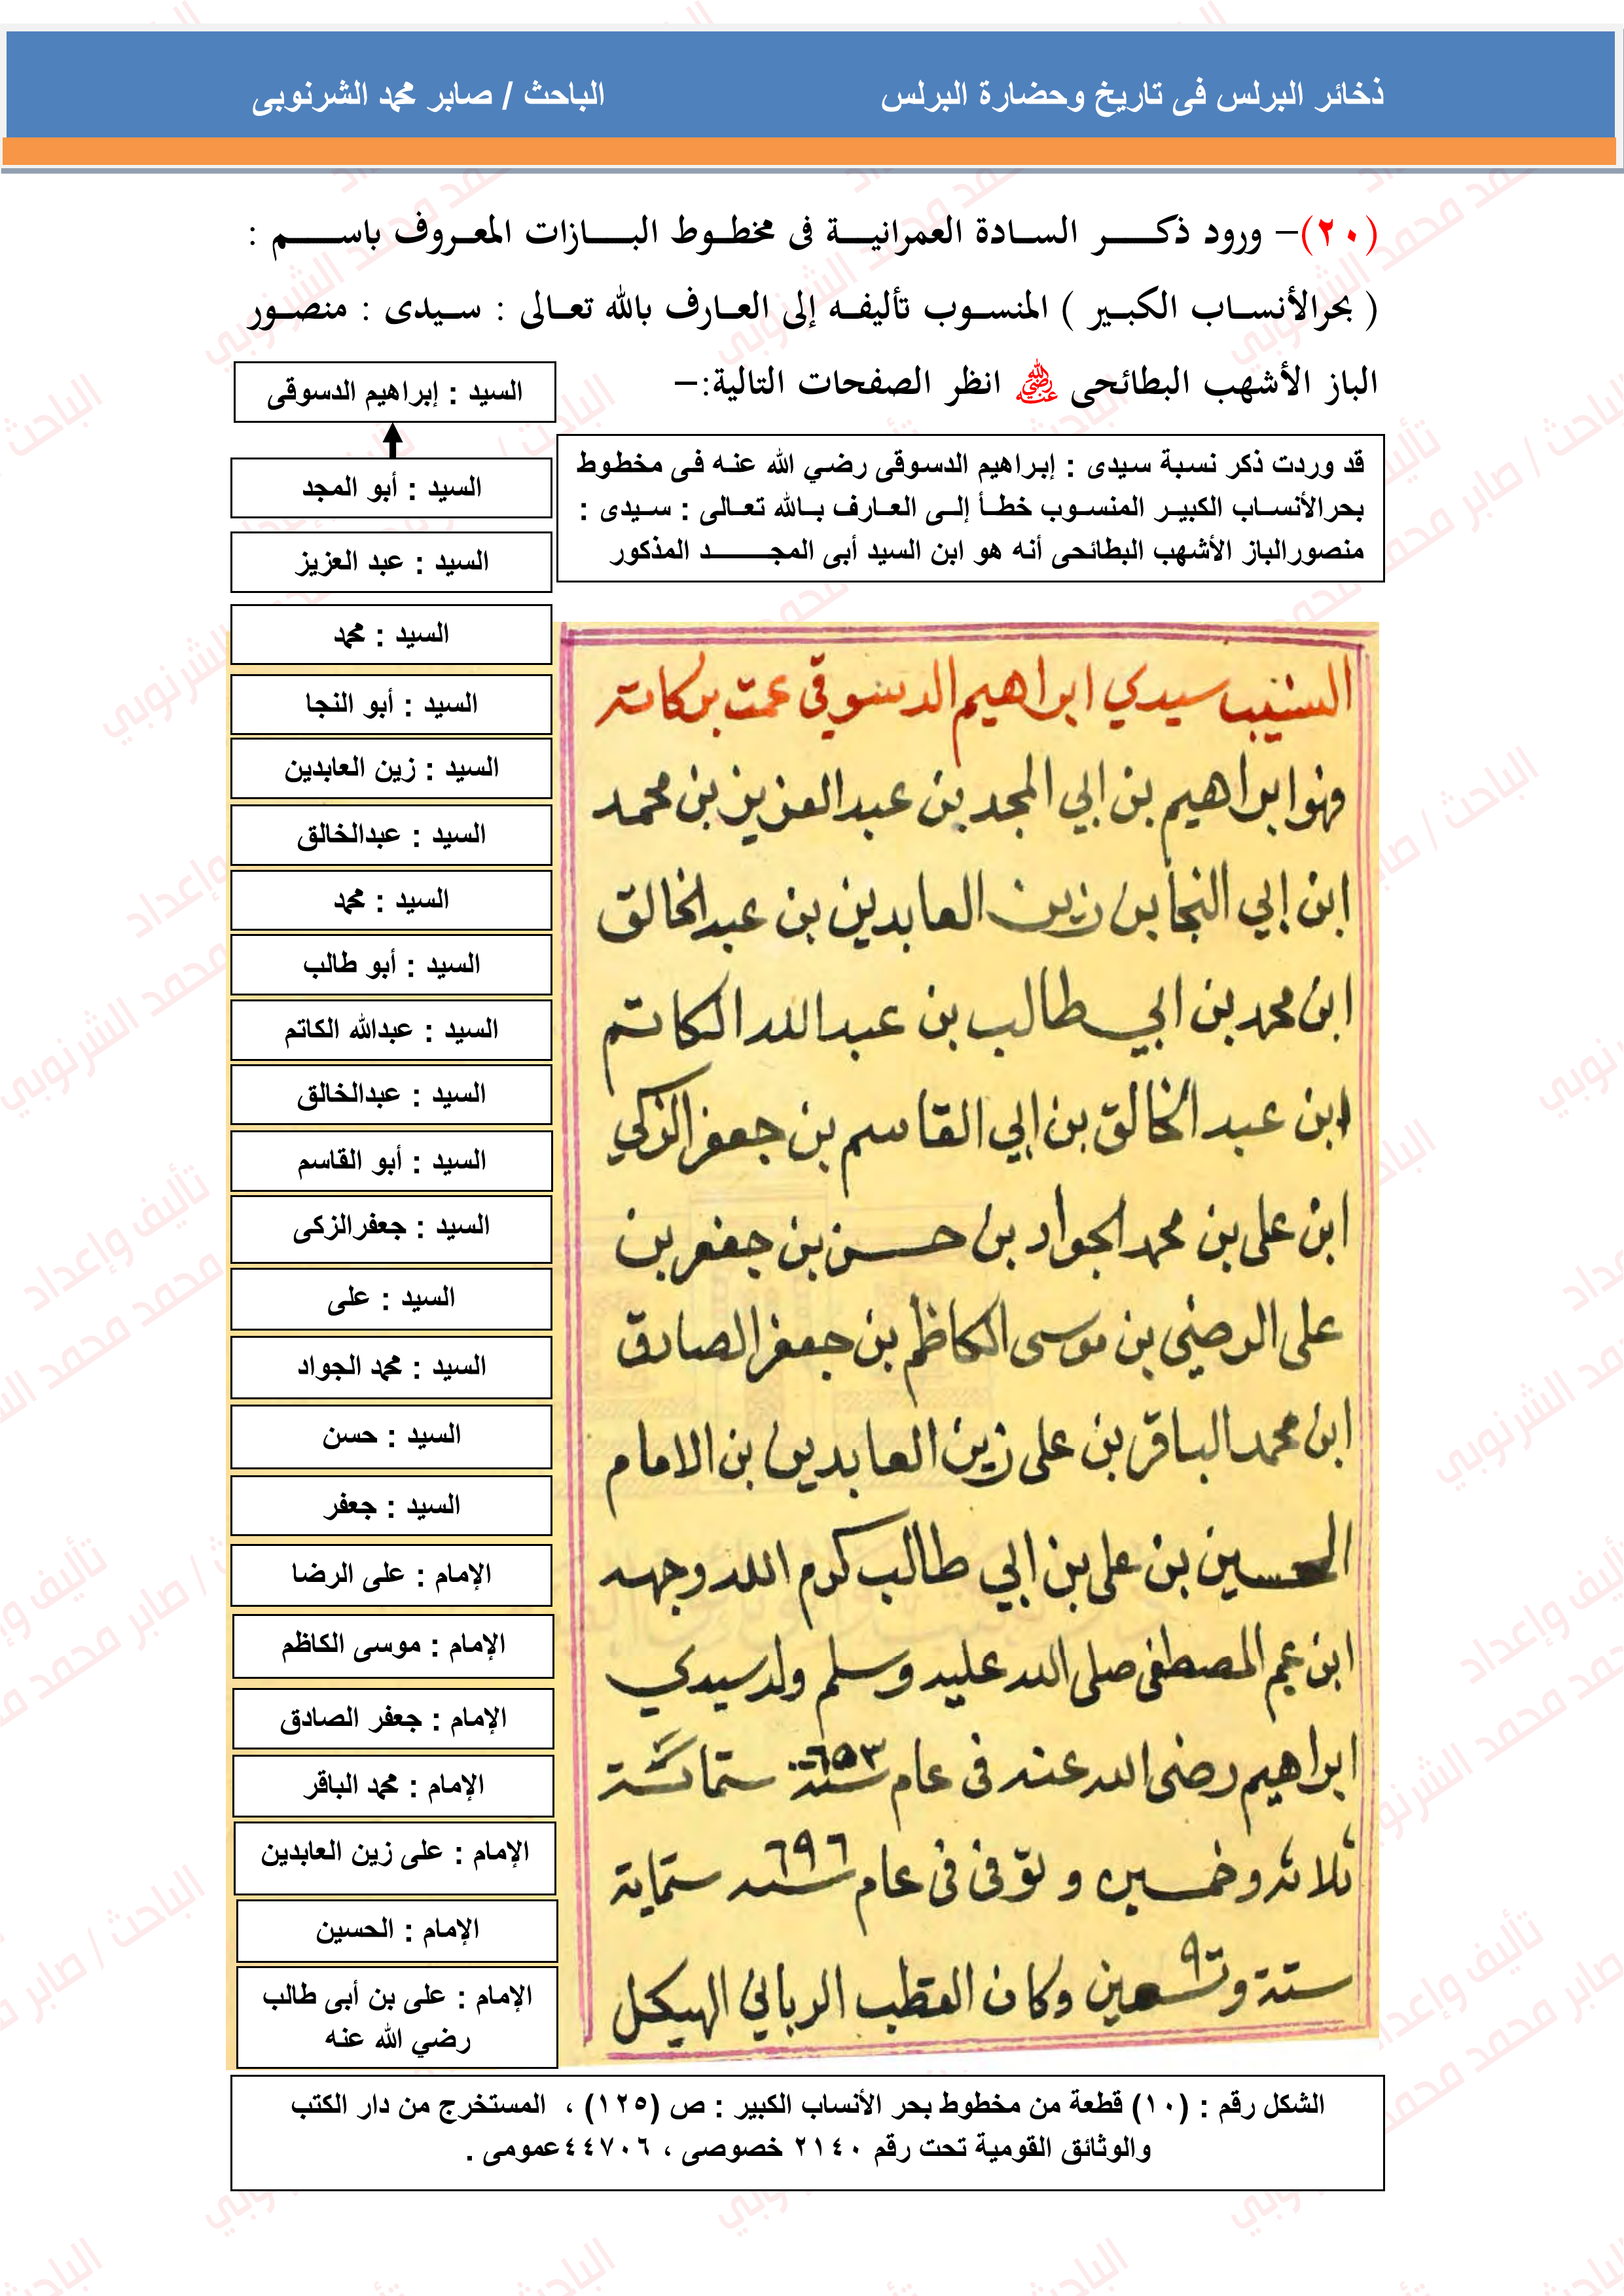 ذخائر البرلس فى تاريخ وحضارة البرلس
الباحث / صابر محمد الشرنوبى
(٢٠)– ورود ذكر السادة العمرانية فى مخطوط البازات المعروف باسم :
( بحرالأنساب الكبير ) المنسوب تأليفه إلى العارف بالله تعالى : سيدى : منصور
الباز الأشهب البطائحى رضي الله عنه انظر الصفحات التالية:–
السيد : إبراهيم الدسوقى
السيد : أبو المجد
السيد : عبد العزيز
السيد : محمد
السيد : أبو النجا
السيد : زين العابدين
السيد : عبدالخالق
السيد : محمد
السيد : أبو طالب
السيد : عبدالله الكاتم
السيد : عبدالخالق
السيد : أبو القاسم
السيد : جعفرالزكى
السيد : على
السيد : محمد الجواد
السيد : حسن
السيد : جعفر
الإمام : على الرضا
الإمام : موسى الكاظم
الإمام : جعفر الصادق
الإمام : محمد الباقر
الإمام : على زين العابدين
الإمام : الحسين
الإمام : على بن أبى طالب
رضي الله عنه
قد وردت ذكر نسبة سيدى : إبراهيم الدسوقى رضي الله عنه فى مخطوط
بحرالأنساب الكبير المنسوب خطأ إلى العارف بالله تعالى : سيدى :
منصورالباز الأشهب البطائحى أنه هو ابن السيد أبى المجد المذكور
سيدي ابراهيم الدسوقي عمت بركاته
فهو ابراهيم بن ابي المجد بن عبد العزيز بن محمد
ابن ابي النجا بن زين العابدين بن عبد الخالق
ابن محمد بن ابي طالب بن عبد الله الكاتم
ابن عبد الخالق بن ابي القاسم بن جعفر الزكي
ابن على بن محمد الجواد بن حسن بن جعفر بن
على الرضي بن موسى الكاظم بن جعفر الصادق
ابن محمد الباقر بن على زين العابدين بن الامام
الحسين بن على بن ابي طالب كرم الله وجهه
ابن عم المصطفى صلى الله عليه وسلم ولد سيدي
ابراهيم رضى الله عنه فى عام سنة ٦٥٣ ستمائة
ثلاثة وخمسين و توفى فى عام سنه ٦٩٦ ستماية
ستة وتسعين وكان القطب الرباني الهيكل
الشكل رقم : (١٠) قطعة من مخطوط بحر الأنساب الكبير : ص (١٢٥) ، المستخرج من دار الكتب
والوثائق القومية تحت رقم ٢١٤٠ خصوصى ، ٤٤٧٠٦عمومى .
تأليف وإعداد
الباحث / صابر محمد محمد الشرنوبي